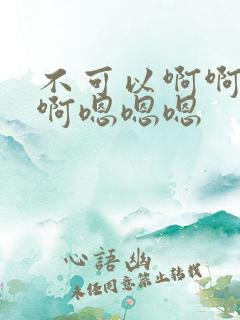 不可以啊啊
啊嗯嗯嗯
心語幽
未经同意禁止转载